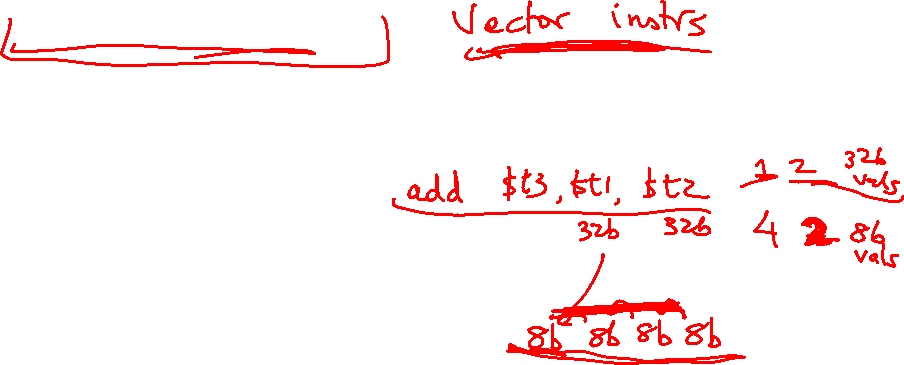 Vector instrs
add $t3, $t1, $t2 1 2 32b vals
32b 32b 4 2 8b vals
8b 8b 8b 8b